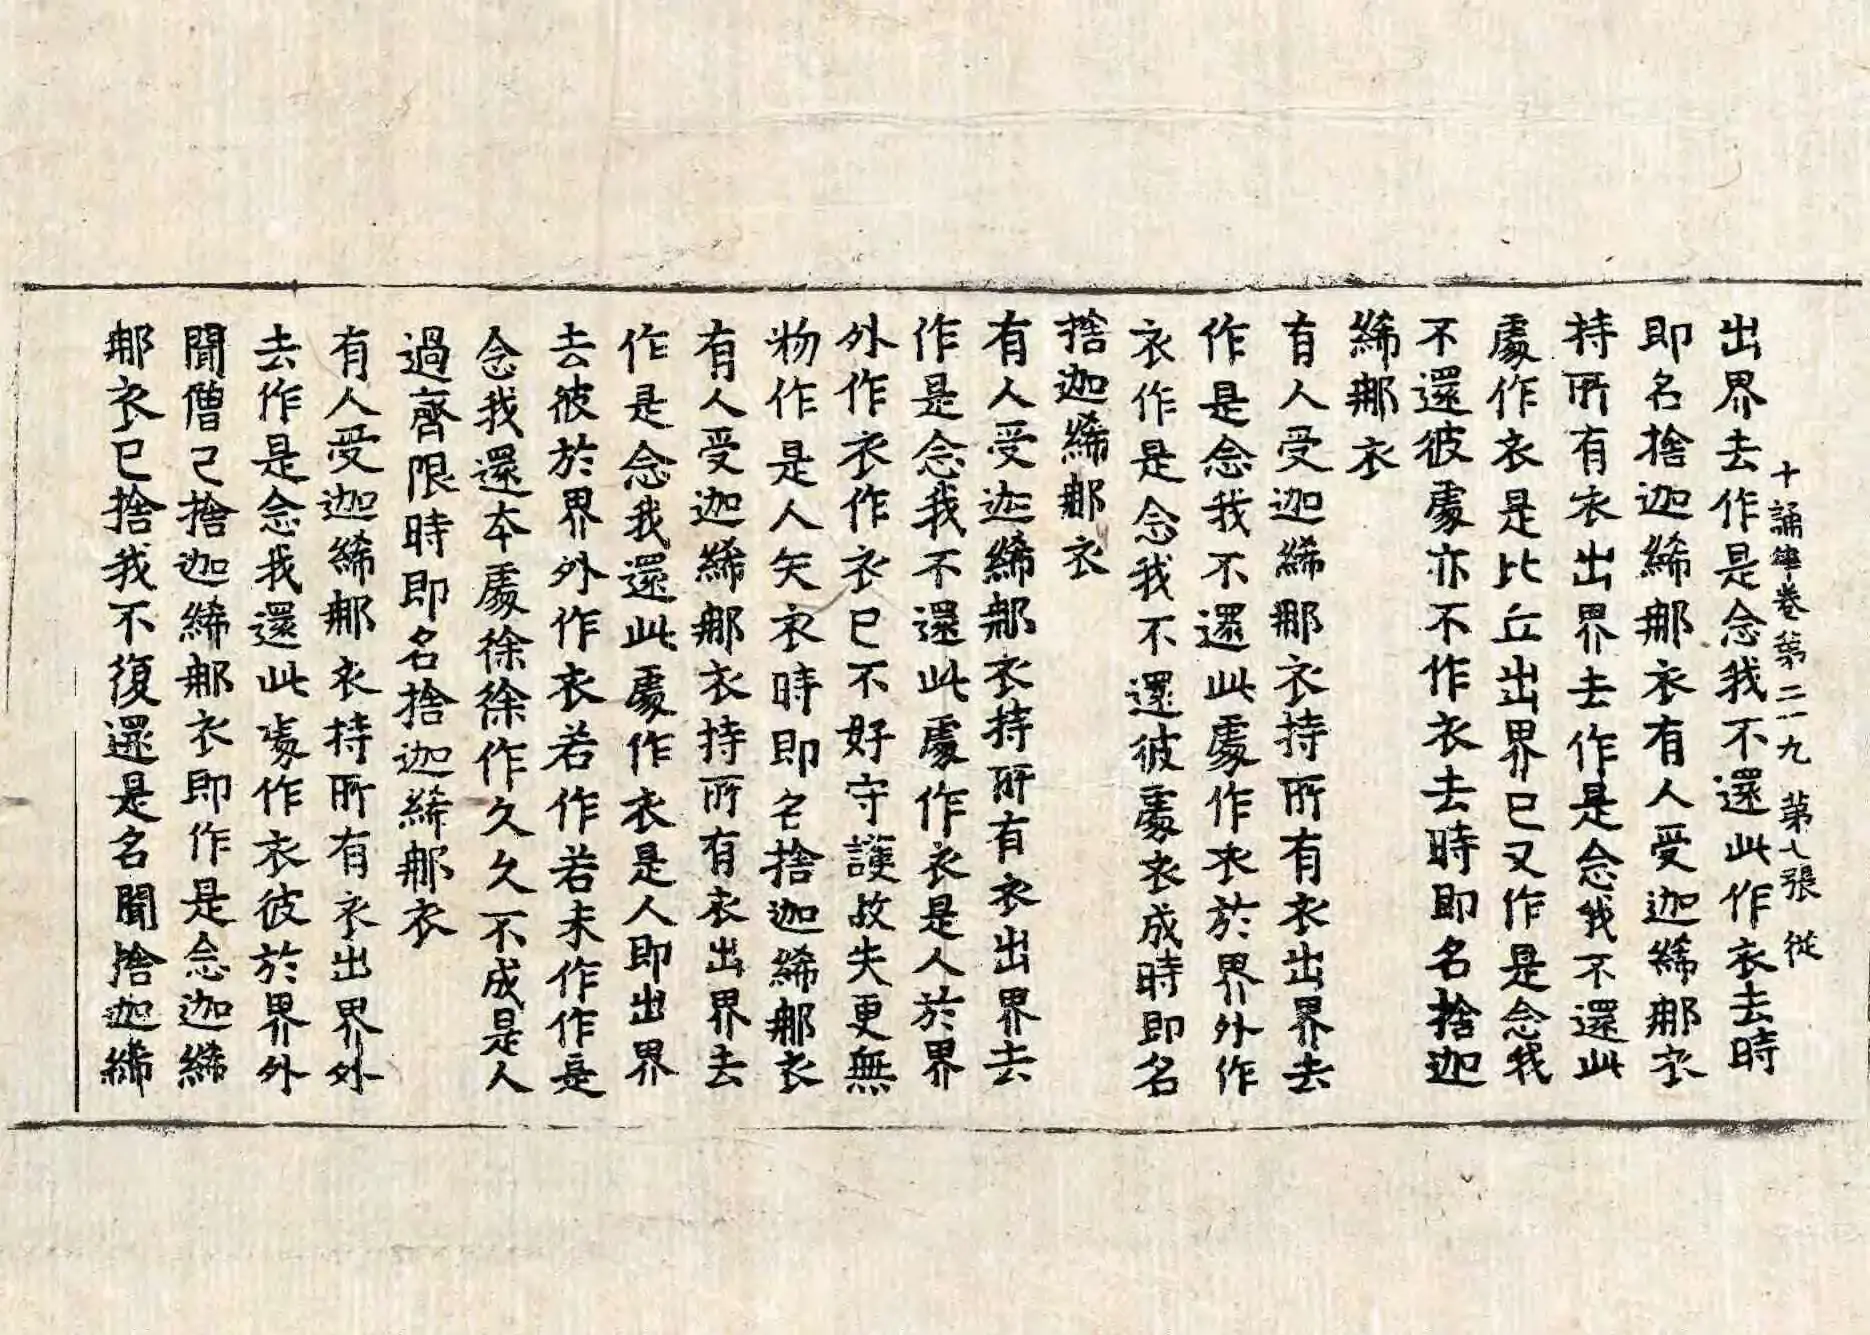 出界去作是念我不還此作衣去時
十誦律卷第二十九 第七張 從
即名捨迦絺那衣有人受迦絺那衣
持所有衣出界去作是念我不還此
處作衣是比丘出界已又作是念我
不還彼處亦不作衣去時即名捨迦
絺那衣
有人受迦絺那衣持所有衣出界去
作是念我不還此處作衣於界外作
衣作是念我不還彼處衣成時即名
捨迦絺那衣
有人受迦絺那衣持所有衣出界去
作是念我不還此處作衣是人於界
外作衣作衣已不好守護故失更無
物作是人失衣時即名捨迦絺那衣
有人受迦絺那衣持所有衣出界去
作是念我還此處作衣是人即出界
去彼於界外作衣若作若未作作是
念我還本處徐徐作久久不成是人
過齊限時即名捨迦絺那衣
有人受迦絺那衣持所有衣出界外
去作是念我還此處作衣彼於界外
聞僧已捨迦絺那衣即作是念迦絺
那衣已捨我不復還是名聞捨迦絺